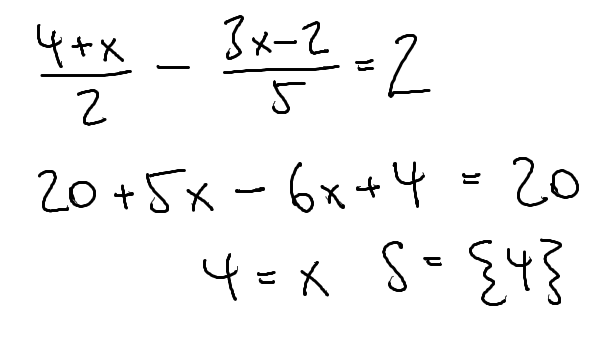 (4+x)/2 − (3x−2)/5 = 2
20 + 5x − 6x + 4 = 20
4 = x S = {4}